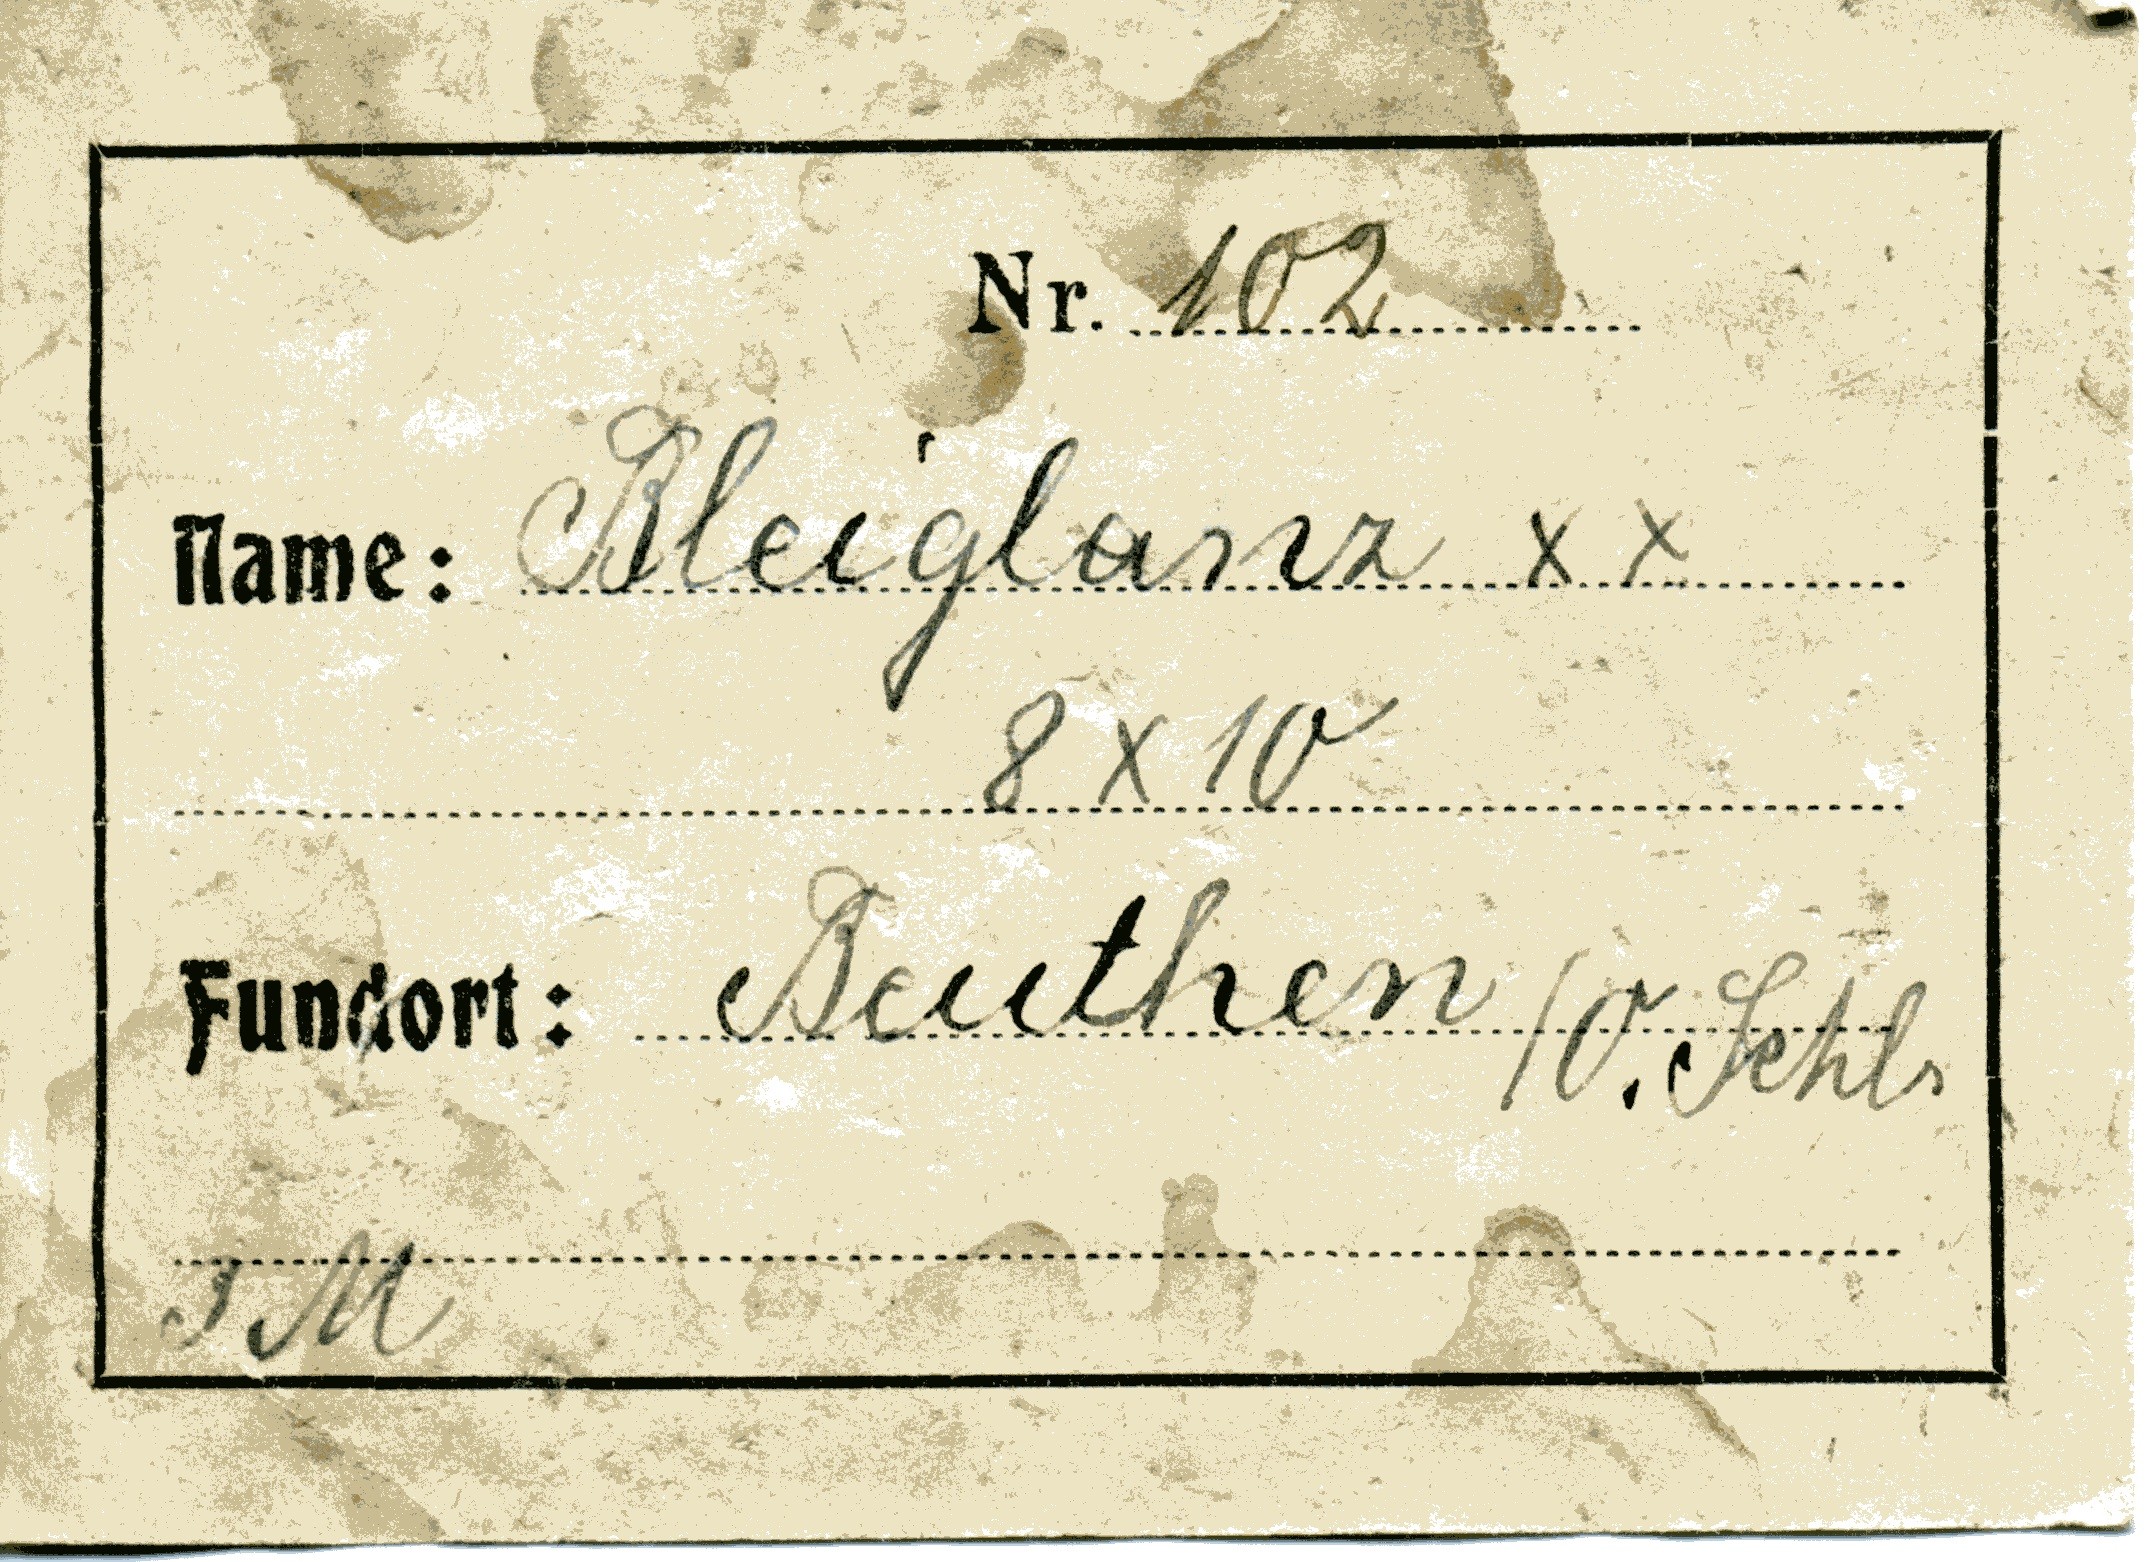 Nr. 102
Name: Bleiglanz x x
8 x 10
Fundort: Beuthen / O. Schls
3 M